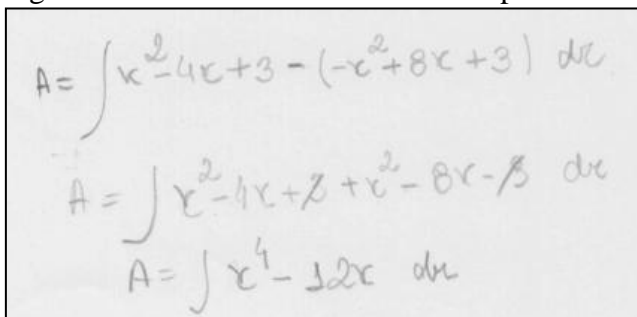 A = ∫ x² - 4x + 3 - (-x² + 8x + 3) dx
A = ∫ x² - 4x + 3 + x² - 8x - 3 dx
A = ∫ x⁴ - 12x dx